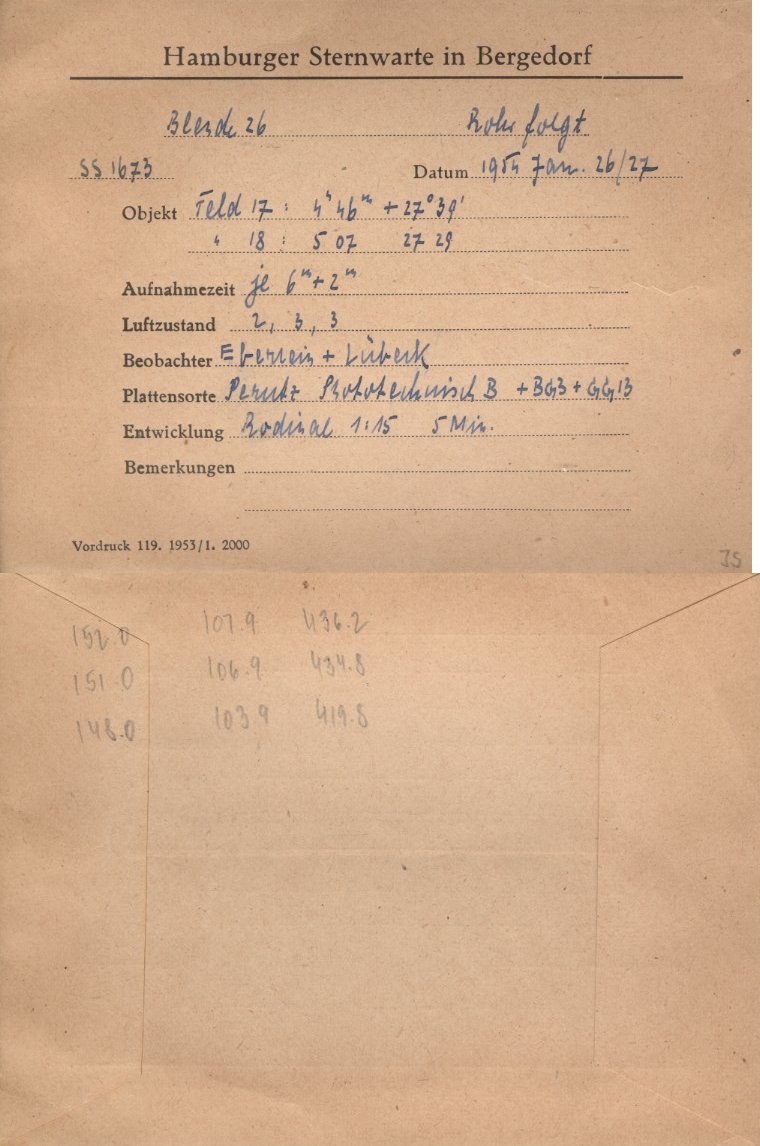 Hamburger Sternwarte in Bergedorf
Blende 26 Rohr folgt
SS 1673 Datum 1954 Jan. 26/27
Objekt Feld 17 : 4ʰ 46ᵐ +27° 39'
" 18 : 5 07 27 29
Aufnahmezeit je 6ᵐ + 2ᵐ
Luftzustand 2, 3, 3
Beobachter Eberlein + Lübeck
Plattensorte Perutz Phototechnisch B + BG3 + GG13
Entwicklung Rodinal 1:15 5 Min.
Bemerkungen
Vordruck 119. 1953/1. 2000
JS
152.0 107.9 436.2
151.0 106.9 434.8
148.0 103.9 419.8